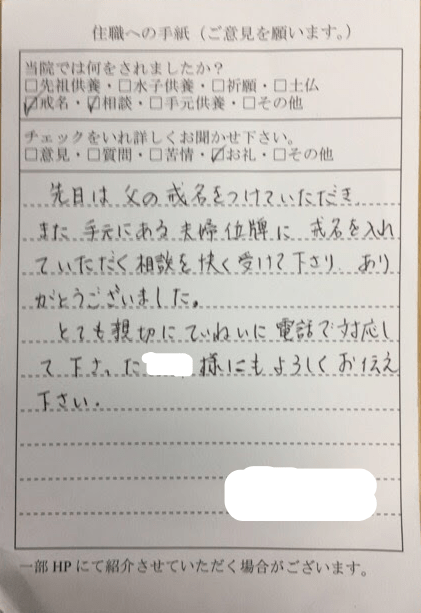 住職への手紙（ご意見を願います。）
当院では何をされましたか？
□先祖供養・□水子供養・□祈願・□土仏
☑戒名・☑相談・□手元供養・□その他
チェックをいれ詳しくお聞かせ下さい。
□意見・□質問・□苦情・☑お礼・□その他
先日は父の戒名をつけていただき、
また手元にある夫婦位牌に戒名を入れ
ていただく相談を快く受けて下さり、あり
がとうございました。
とても親切にていねいに電話で対応し
て下さった
様にもよろしくお伝え
下さい。
一部HPにて紹介させていただく場合がございます。